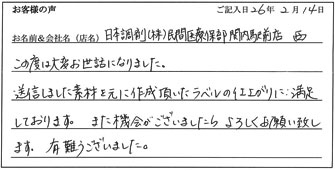 お客様の声 ご記入日26年2月14日
お名前&会社名(店名) 日本調剤(株)民間医療保部 関内駅前店 西
この度は大変お世話になりました。
送信しました素材を元に作成頂いたラベルの仕上がりに満足
しております。また機会がございましたら よろしくお願い致し
ます。有難うございました。